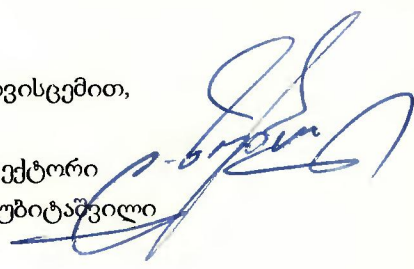 ვისცემით,
ექტორი
უბიტაშვილი